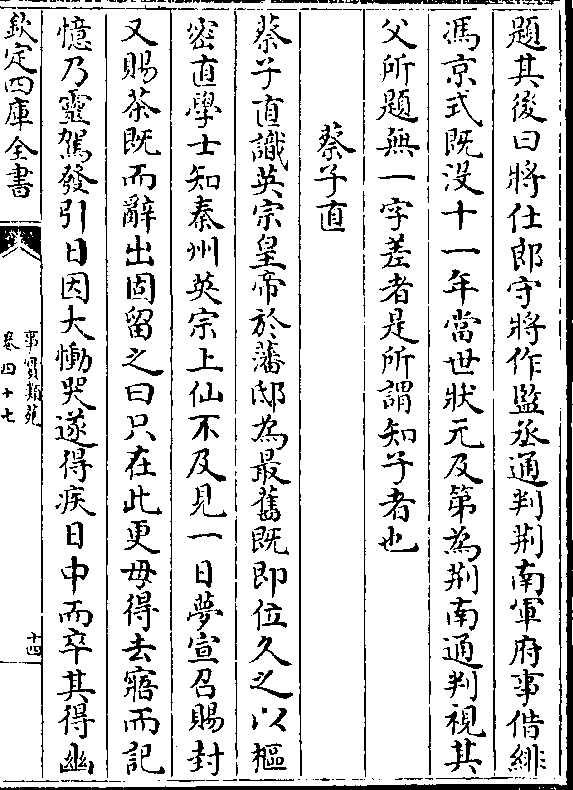 題其後曰將仕郎守將作監丞通判荆南軍府事偕緋
馮京式既沒十一年當世狀元及第為荆南通判視其
父所題無一字差者是所謂知子者也
蔡子直
蔡子直識英宗皇帝於藩邸為最舊既即位久之以樞
密直學士知秦州英宗上仙不及見一日夢宣召賜封
又賜茶既而辭出固留之曰只在此更毋得去寤而記
憶乃靈駕發引日因大慟哭遂得疾日中而卒其得幽
欽定四庫全書
事實類苑
卷四十七
十四